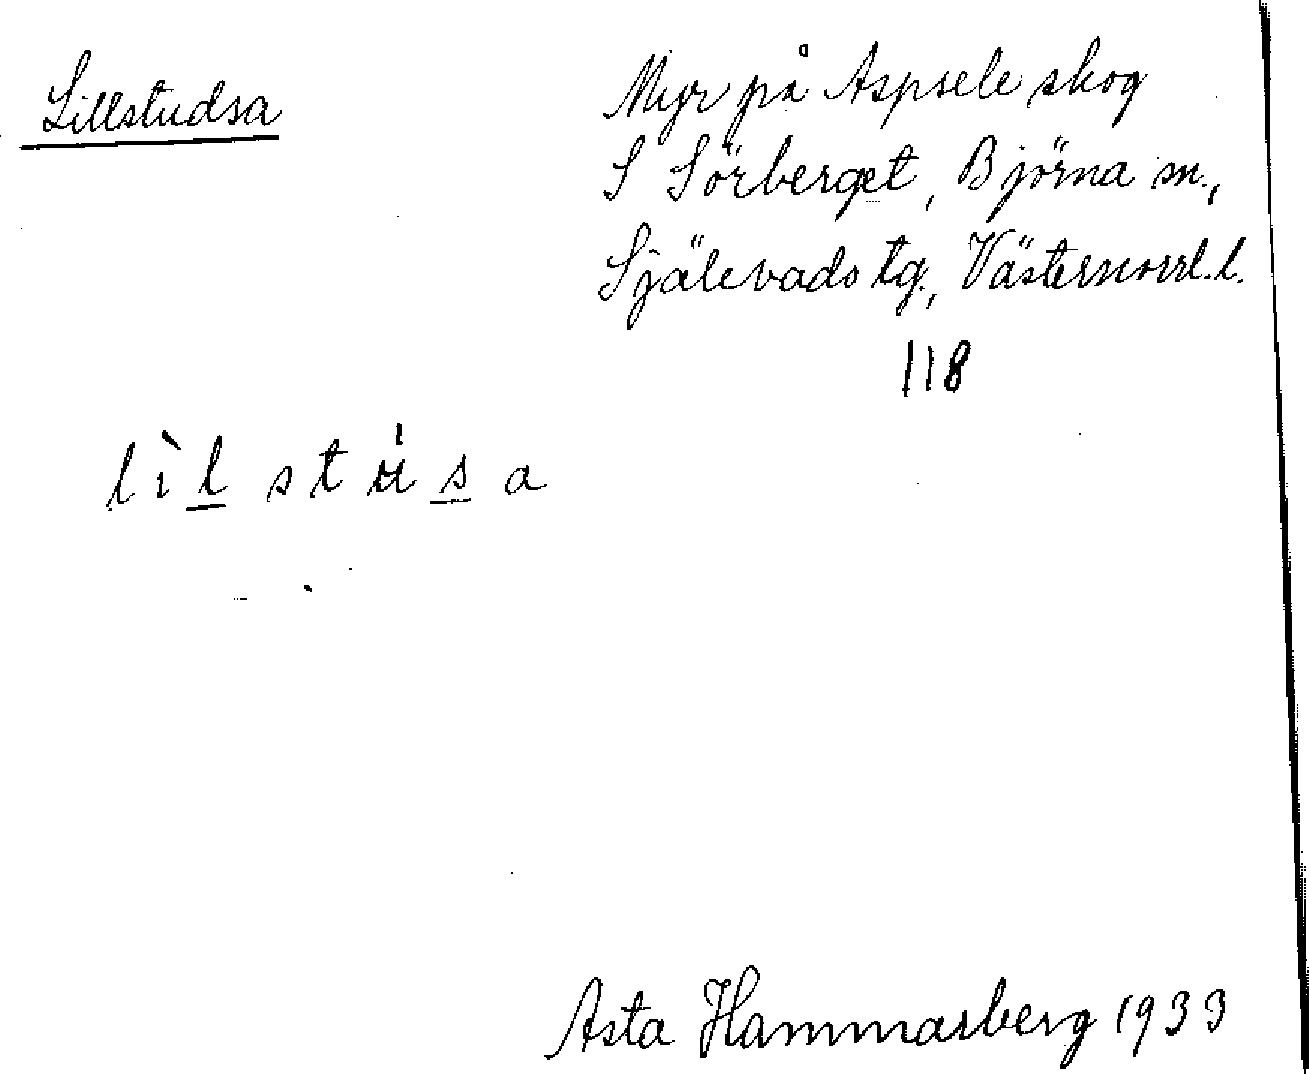 Lillstudsa
Myr på Aspsele skog
S Sörberget, Björna sn.,
Själevads tg., Västernorrl. l.
118
lìl stʉ̍sa
Asta Hammarberg 1933